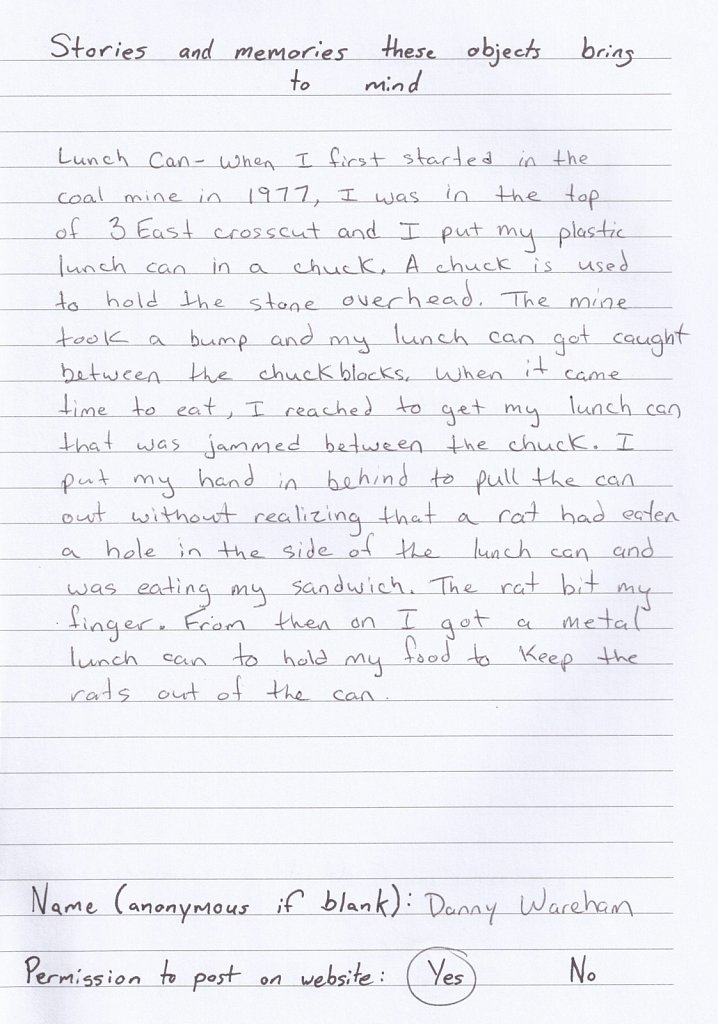 Stories and memories these objects bring
to mind
Lunch Can- When I first started in the
coal mine in 1977, I was in the top
of 3 East crosscut and I put my plastic
lunch can in a chuck. A chuck is used
to hold the stone overhead. The mine
took a bump and my lunch can got caught
between the chuckblocks. When it came
time to eat, I reached to get my lunch can
that was jammed between the chuck. I
put my hand in behind to pull the can
out without realizing that a rat had eaten
a hole in the side of the lunch can and
was eating my sandwich. The rat bit my
finger. From then on I got a metal
lunch can to hold my food to keep the
rats out of the can.
Name (anonymous if blank): Danny Wareham
Permission to post on website: Yes No